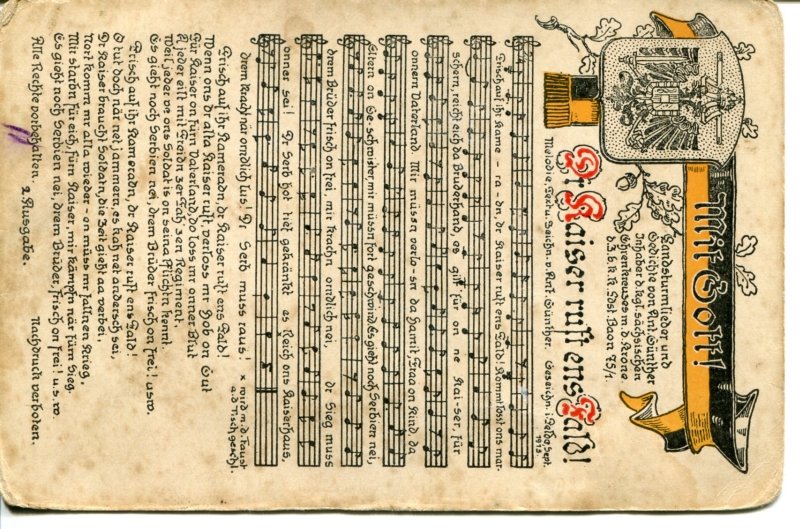 Mit Gott!
Landsturmlieder und
Gedichte von Ant. Günther
Inhaber d. kgl. sächsischen
Ehrenkreuzes m. d. Krone
d. Z. b. k. k. Ldst. Baon 75/1.
Dr Kaiser rufft ens Fald!
Melodie, Text u. Zeichn. v. Ant. Günther. Gezeichn. i. Felde Sept.
1915.
Frisch auf ihr Kame - ra - dn, dr Kaiser ruft ens Fald! Kommt losst ons mar-
schern, reich eich da Bruderhand, es gilt für on - ne Kai - ser, für
onnern Vaterland Mir müssn verlo - sn da Hamit, Fraa on Kind, da
Eltern on Ge - schwister, mir müssn fort geschwind. Es gieht noch Serbien nei,
drem Brüder frisch on frei, mir krachn ordlich nei, dr Sieg muss
onner sei! Dr Serb hot tief gekränkt es Reich ons Kaiserhaus,
drem kracht när ordlich lus! Dr Serb muss raus! × wird m. d. Faust
a. d. Tisch geschl.
Frisch auf ihr Kameradn, dr Kaiser ruft ens Fald!
Wenn ons dr alta Kaiser ruft, verloss mr Hob on Gut
Für Kaiser on fürn Vaterland, do loss mr onner Blut
A jeder eilt mit Freidn zer Fah, zen Regiment,
Weil jeder ve ons Soldat is on seina Pflichtn kennt.
Es gieht noch Serbien nei, drem Brüder frisch on frei! usw.
Frisch auf ihr Kameradn, dr Kaiser ruft ens Fald!
O tut doch när net jammern, es ka net andersch sei,
Dr Kaiser braucht Soldatn, die Zeit gieht aa verbei,
Nort komm mr alla wieder - on müss mr falln en Krieg.
Mir starbn für eich, fürn Kaiser, mir kämpfn när fürn Sieg.
Es gieht noch Serbien nei, drem Brüder, frisch on frei! u.s.w.
Alle Rechte vorbehalten. 2. Ausgabe. Nachdruck verboten.